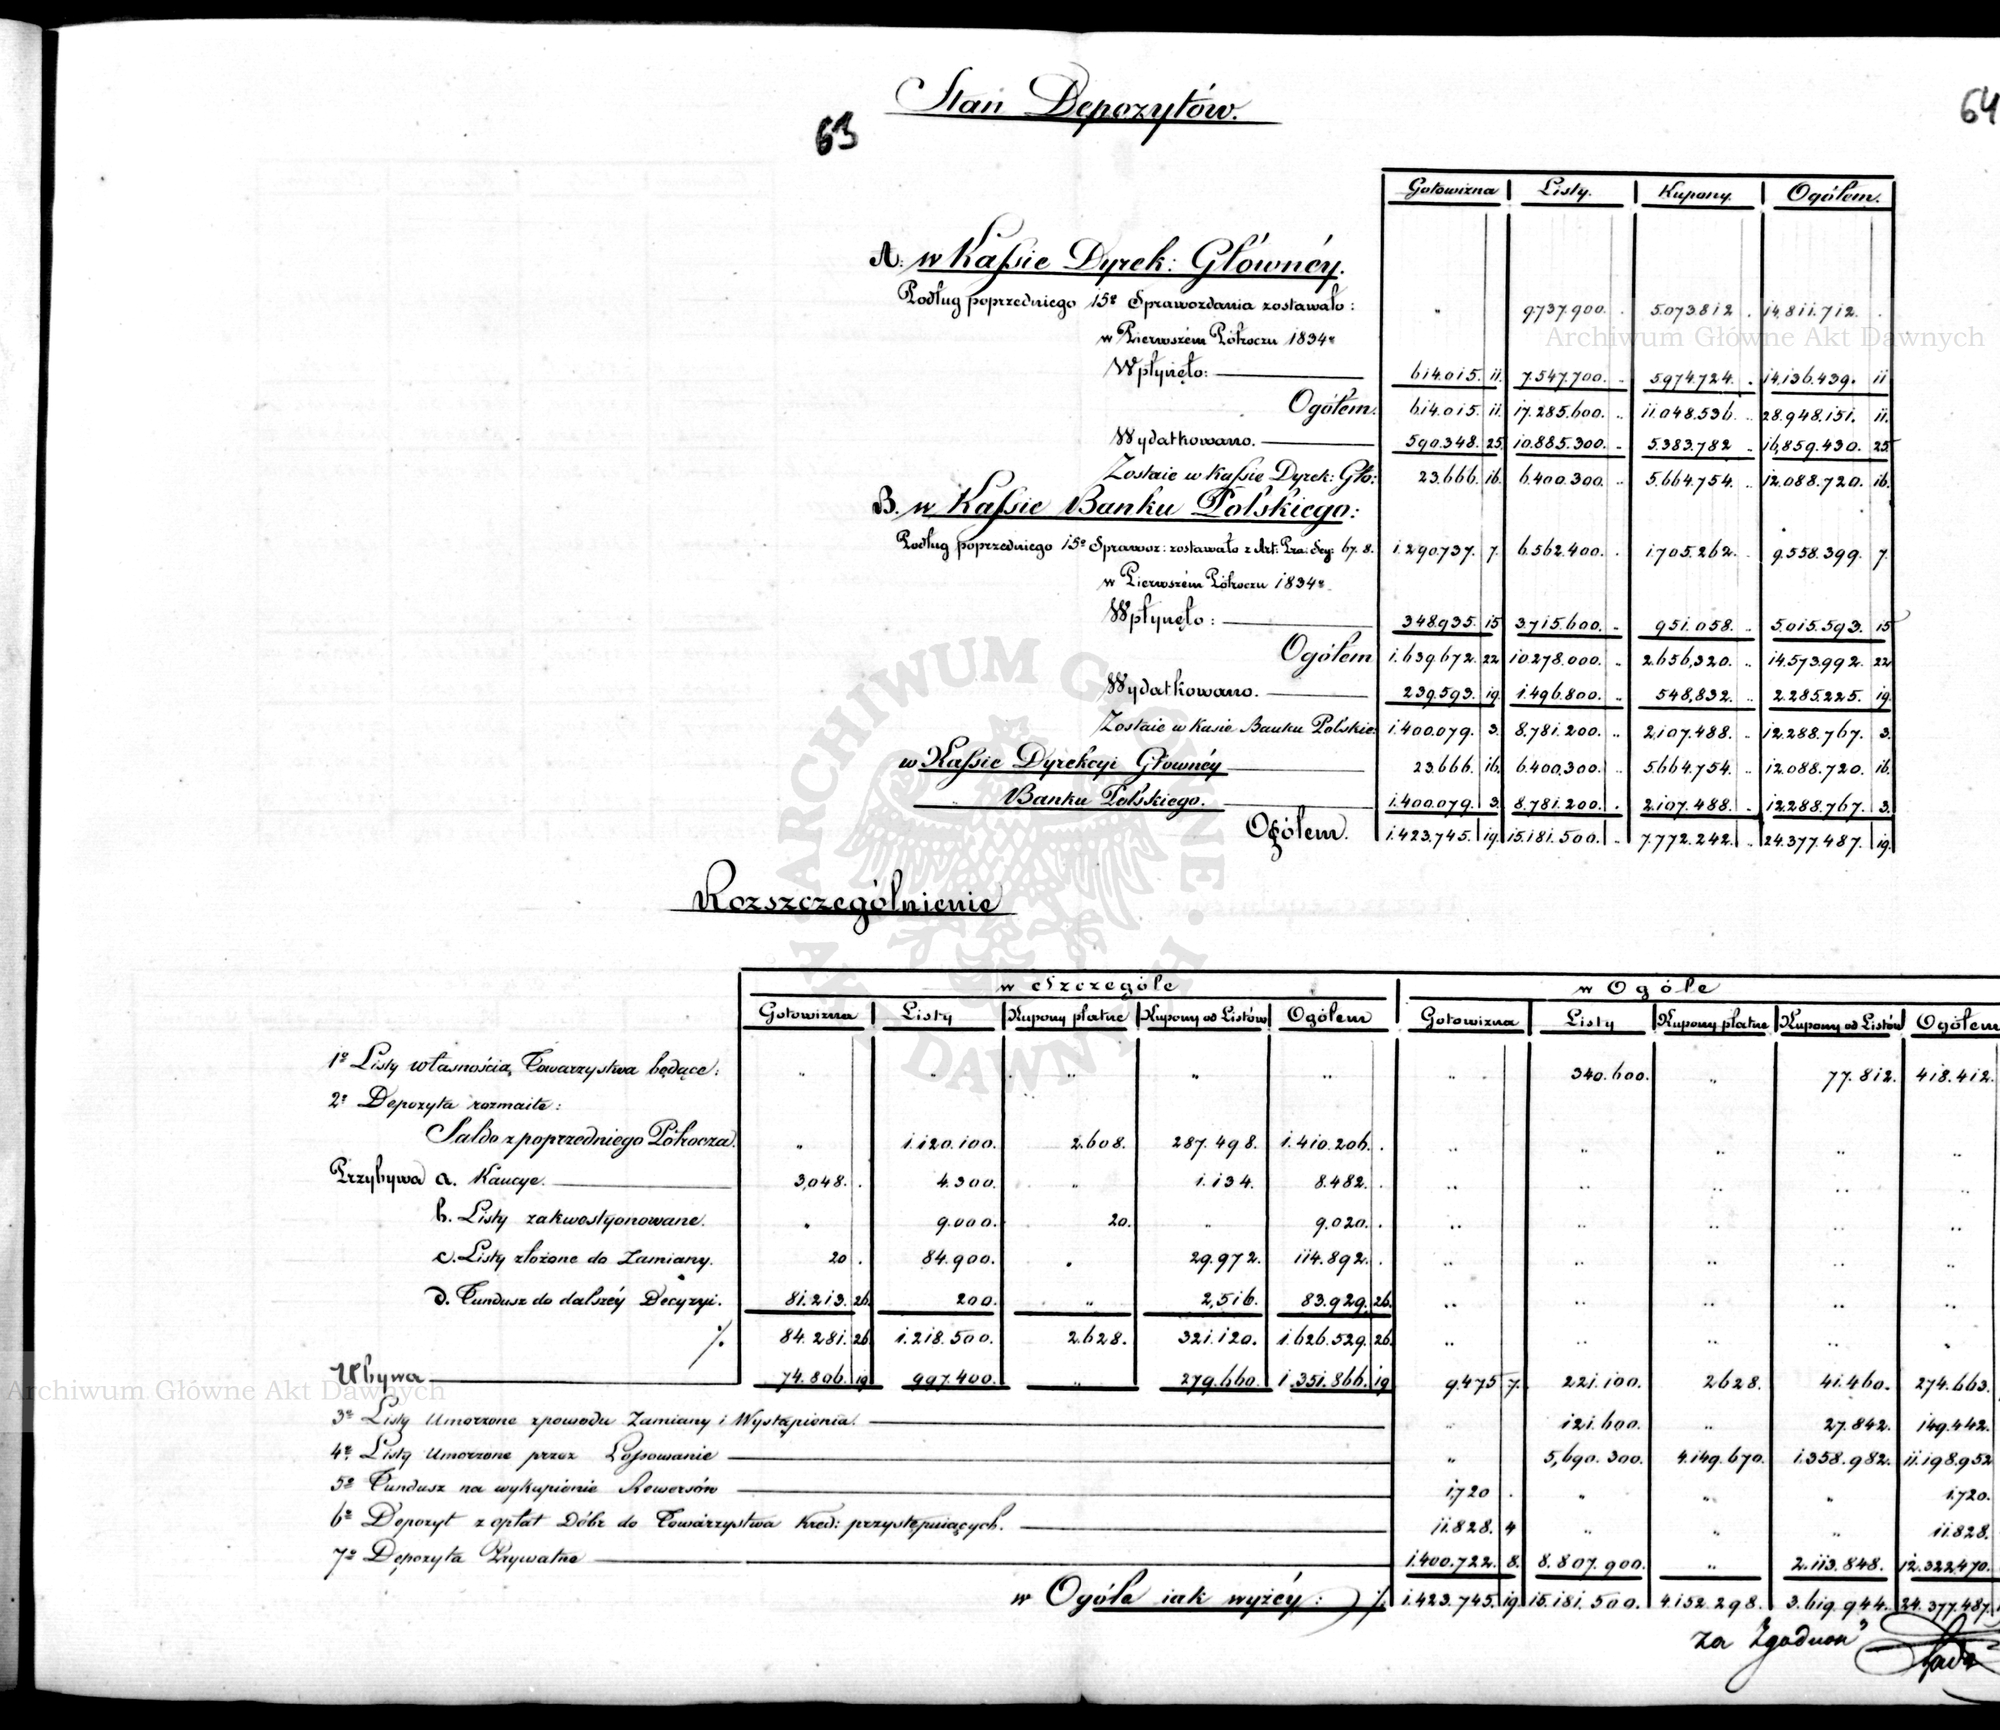 Stan Depozytów.
63
64
Gotowizna | Listy. | Kupony. | Ogółem.
A: w Kassie Dyrek: Główney.
Podług poprzedniego 15º Sprawozdania zostawało: " 9.737.900. . 5.073.812 . 14.811.712. .
Archiwum Główne Akt Dawnych
w Pierwszém Półroczu 1834º
Wpłynęło: 614.015. 11. 7.547.700. .. 5.974.724. . 14.136.439. 11
Ogółem. 614.015. 11. 17.285.600. .. 11.048.536. .. 28.948.151. 11.
Wydatkowano. 590.348. 25 10.885.300. .. 5.383.782 .. 16,859.430. 25
Zostaie w Kassie Dyrek: Głó: 23.666. 16. 6.400.300. .. 5.664.754. .. 12.088.720. 16.
B. w Kassie Banku Polskiego:
Podług poprzedniego 15º Sprawoz: zostawało z Art: Pra: Sey: 67. 8. 1.290.737. 7. 6.562.400. . 1.705.262. . 9.558.399. 7.
w Pierwszém Półroczu 1834º.
Wpłynęło: 348.935. 15 3.715.600. .. 951.058. .. 5.015.593. 15
Ogółem 1.639.672. 22 10.278.000. .. 2.656,320. .. 14.573.992. 22
Wydatkowano. 239.593. 19. 1.496.800. .. 548,832. .. 2.285.225. 19.
Zostaie w Kasie Banku Polskie: 1.400.079. 3. 8.781.200. .. 2.107.488. .. 12.288.767. 3.
w Kassie Dyrekcyi Główney 23.666. 16. 6.400.300. .. 5.664.754. .. 12.088.720. 16.
" Banku Polskiego. 1.400.079. 3. 8.781.200. . 2.107.488. . 12.288.767. 3.
Ogółem. 1.423.745. 19. 15.181.500. .. 7.772.242. .. 24.377.487. 19.
ARCHIWUM GŁÓWNE AKT DAWNYCH
Rozszczególnienie
w Szczególe | w Ogóle
Gotowizna | Listy | Kupony płatne | Kupony od Listów | Ogółem | Gotowizna | Listy | Kupony płatne | Kupony od Listów | Ogółem
1º Listy własnością Towarzystwa będące: " " " " " " 340.600. " 77.812. 418.412.
2º Depozyta rozmaite:
Saldo z poprzedniego Półrocza. " 1.120.100. 2.608. 287.498. 1.410.206. . " " " " "
Przybywa a. Kaucye. 3,048. . 4.300. " 1.134. 8.482. . " " " " "
b. Listy zakwestyonowane. " 9.000. 20. " 9.020. . " " " " "
c. Listy złożone do Zamiany. 20 . 84.900. " 29.972. 114.892. . " " " " "
d. Fundusz do dalszéy Decyzyi. 81.213. 26. 200. " 2,516. 83.929. 26. " " " " "
./. 84.281. 26 1.218.500. 2.628. 321.120. 1.626.529. 26. " " " " "
Ubywa 74.806. 19 997.400. " 279.660. 1.351.866. 19 9.475 7. 221.100. 2628. 41.460. 274.663.
Archiwum Główne Akt Dawnych
3º Listy Umorzone z powodu Zamiany i Wystąpienia. " 121.600. " 27.842. 149.442.
4º Listy Umorzone przez Lossowanie " 5,690.300. 4.149.670. 1.358.982. 11.198.952
5º Fundusz na wykupienie Rewersów 1.720 . " " " 1.720.
6º Depozyt z opłat Dóbr do Towarzystwa Kred: przystępuiących. 11.828. 4 " " " 11.828.
7º Depozyta Prywatne 1.400.722. 8. 8.807.900. " 2.113.848. 12.322.470.
w Ogóle iak wyżéy: ./. 1.423.745. 19. 15.181.500. 4.152.298. 3.619.944. 24.377.487.
Za Zgodność